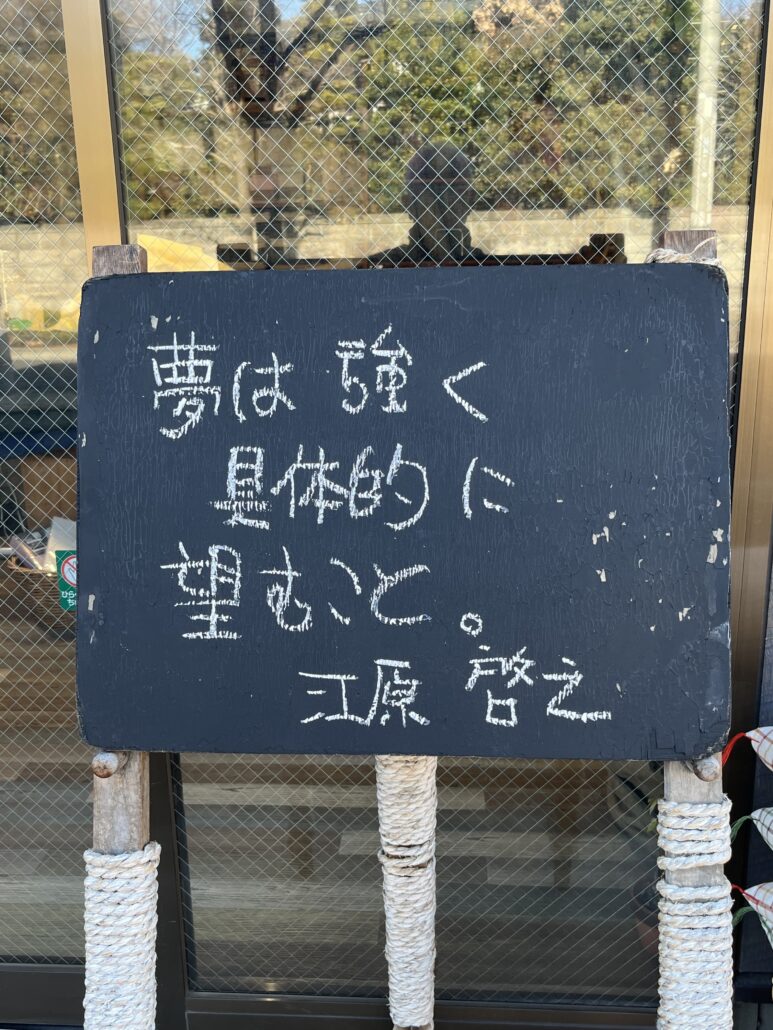 夢は強く
具体的に
望むこと。
江原啓之
ひら